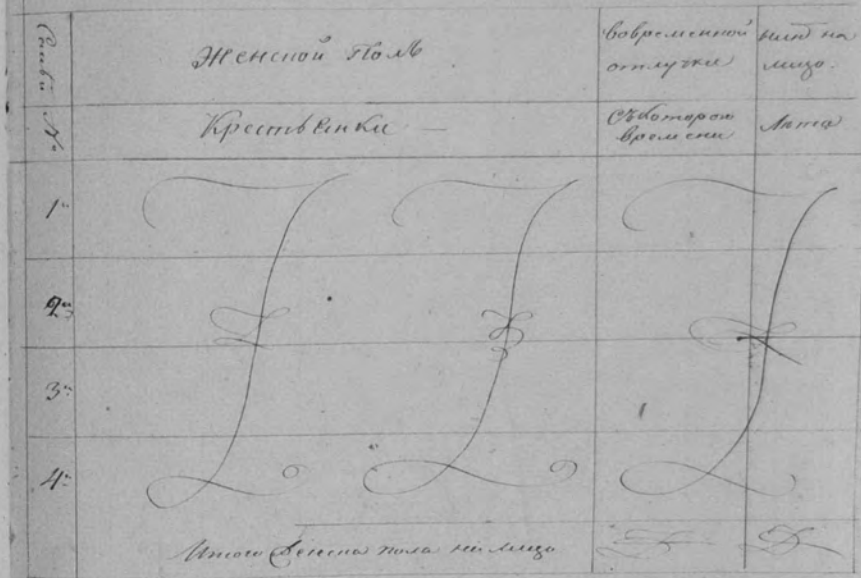 Женской Полъ
вовременной отлучки
ныне на лицо.
Семьи №
Крестьянки —
Съкотораго времени
Лѣта
1
2
3
4
Итого Женска пола на лицо